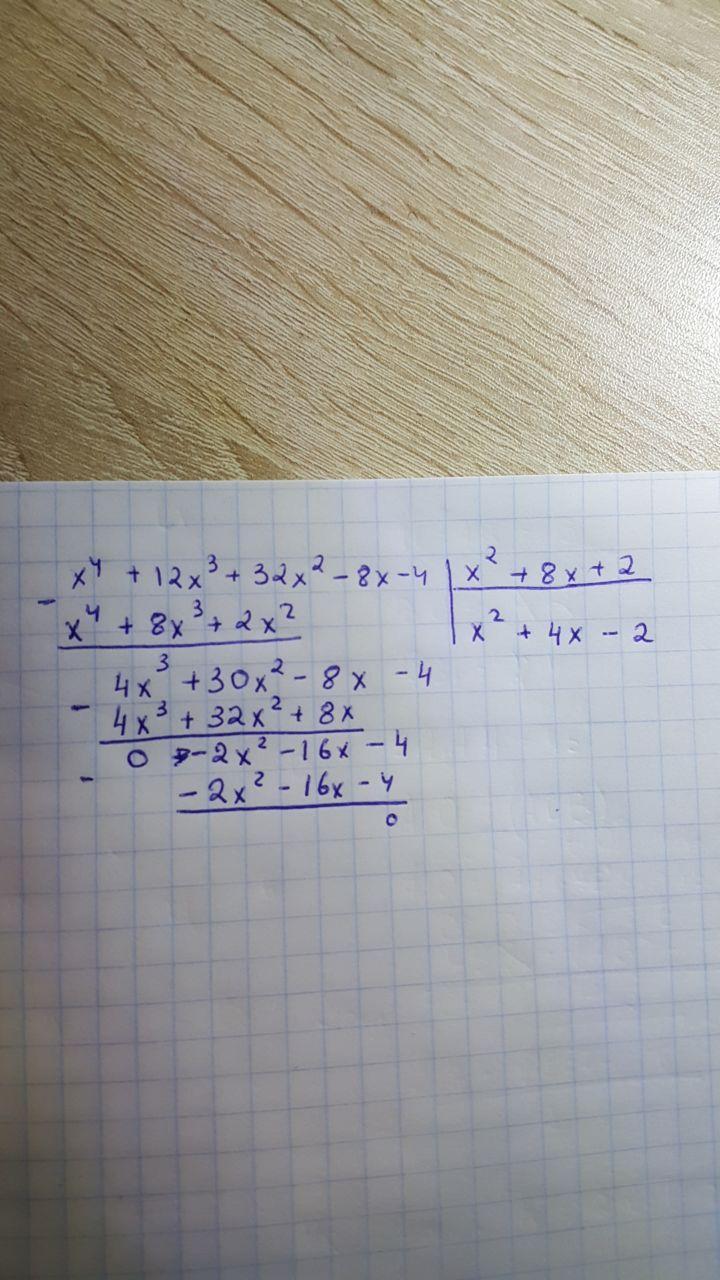 x⁴ + 12x³ + 32x² - 8x - 4 | x² + 8x + 2
- x⁴ + 8x³ + 2x² | x² + 4x - 2
4x³ + 30x² - 8x - 4
- 4x³ + 32x² + 8x
0 - 2x² - 16x - 4
- - 2x² - 16x - 4
0